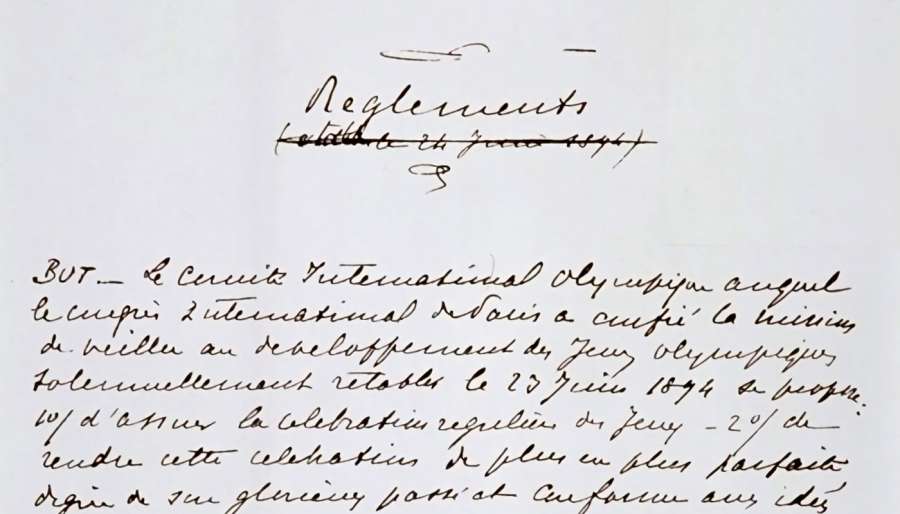 Reglements
(établi le 24 Juin 1894)
BUT _ Le Comité International Olympique auquel
le congrès International de Paris a confié la mission
de veiller au developpement des Jeux olympiques
solennellement rétablis le 23 Juin 1894 se propose:
1o/ d'assurer la celebration regulière des Jeux _ 2o/ de
rendre cette celebration de plus en plus parfaite
digne de son glorieux passé et conforme aux idées